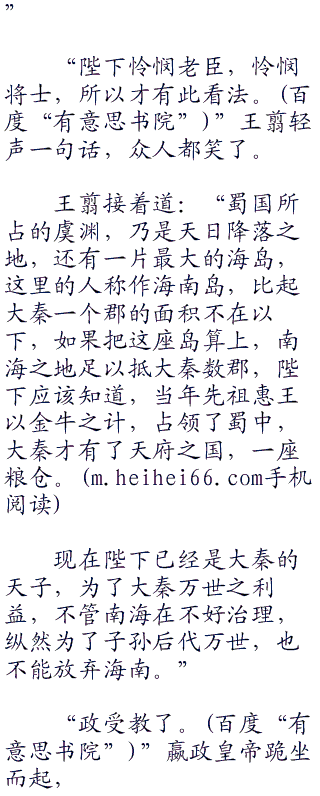 ”
“陛下怜悯老臣，怜悯
将士，所以才有此看法。(百
度“有意思书院”)”王翦轻
声一句话，众人都笑了。
王翦接着道：“蜀国所
占的虞渊，乃是天日降落之
地，还有一片最大的海岛，
这里的人称作海南岛，比起
大秦一个郡的面积不在以
下，如果把这座岛算上，南
海之地足以抵大秦数郡，陛
下应该知道，当年先祖惠王
以金牛之计，占领了蜀中，
大秦才有了天府之国，一座
粮仓。(m.heihei66.com手机
阅读)
现在陛下已经是大秦的
天子，为了大秦万世之利
益，不管南海在不好治理，
纵然为了子孙后代万世，也
不能放弃海南。”
“政受教了。(百度“有
意思书院”)”嬴政皇帝跪坐
而起，